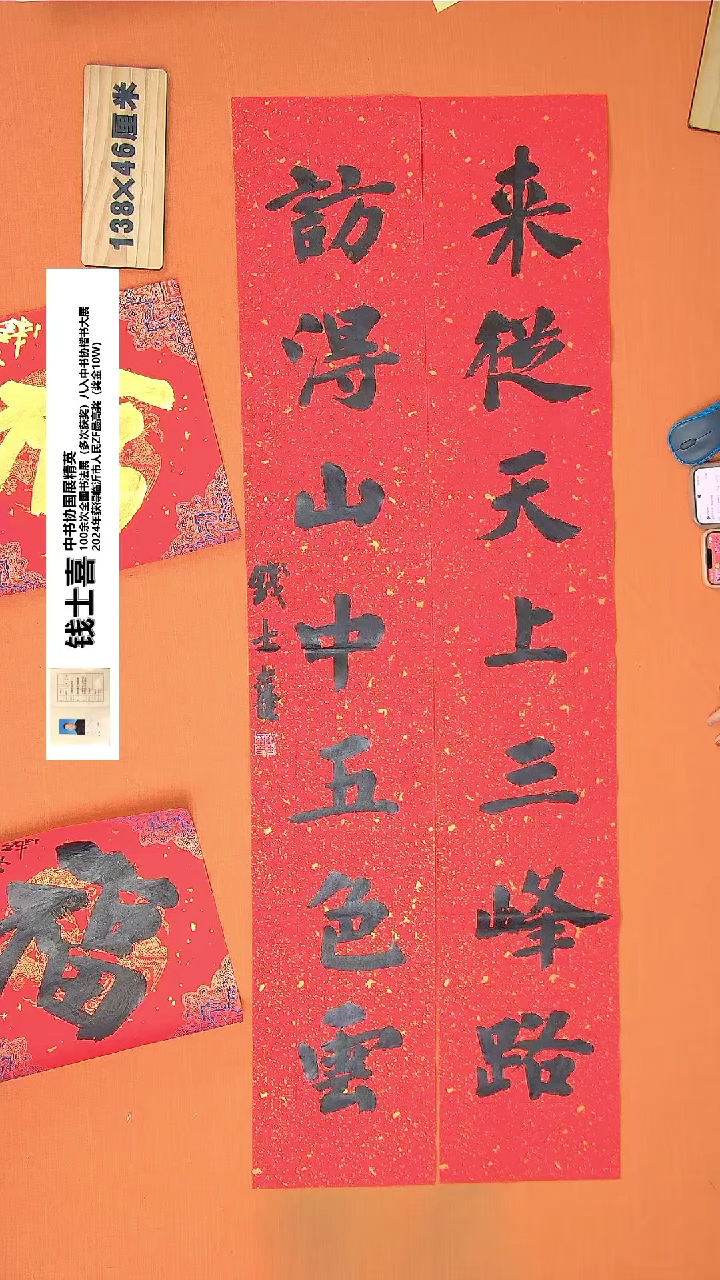 来從天上三峰路
訪得山中五色雲
钱士喜
138×46厘米
钱士喜
中书协国展精英
100余次全国书法展（多次获奖）八入中书协楷书大展
2024年获得临沂市人民ZF最高奖（奖金10W）
福